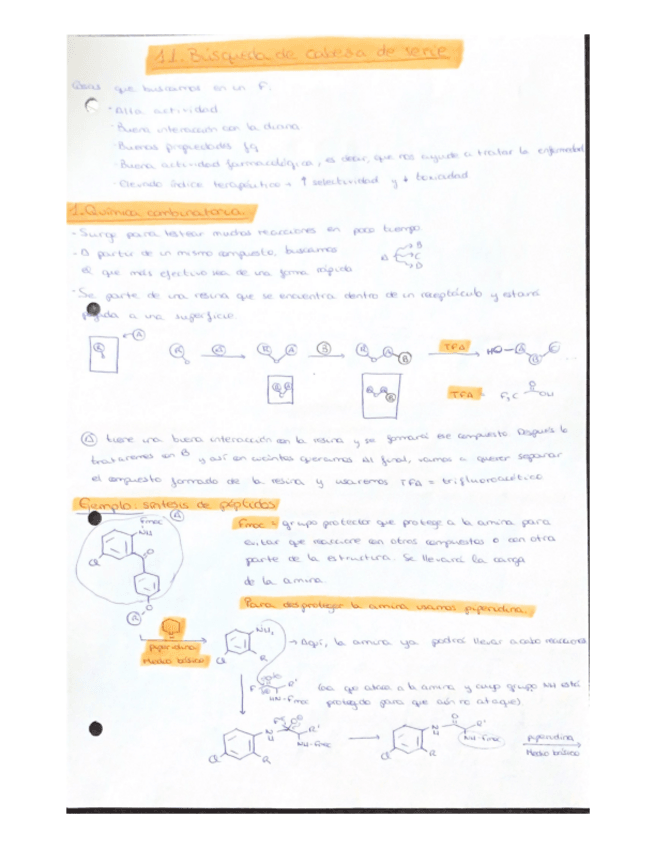 11. Búsqueda de cabeza de serie
Cosas que buscamos en un F:
· Alta actividad
· Buena interacción con la diana
· Buenas propiedades fq
· Buena actividad farmacológica, es decir, que nos ayude a tratar la enfermedad
· Elevado índice terapéutico → ↑ selectividad y ↓ toxicidad
1. Química combinatoria.
· Surge para testear muchas reacciones en poco tiempo
· A partir de un mismo compuesto, buscamos
el que más efectivo sea de una forma rápida
A B C D
· Se parte de una resina que se encuentra dentro de un receptáculo y estará
pegada a una superficie
A
R A R A B R A B TFA HO A B C
TFA F3C O OH
A tiene una buena interacción con la resina y se formará ese compuesto. Después lo
trataremos con B y así en cuántos queramos. Al final, vamos a querer separar
el compuesto formado de la resina y usaremos TFA = trifluoroacético
Ejemplo: síntesis de péptidos
Fmoc A
NH
Cl
O
R
Fmoc = grupo protector que protege a la amina para
evitar que reaccione con otros compuestos o con otra
parte de la estructura. Se llevará la carga
de la amina.
Para desproteger la amina usamos piperidina.
piperidina
Medio básico
NH2
Cl R
→ Aquí, la amina ya podrá llevar a cabo reacciones
F R'
HN-Fmoc
que ataca a la amina y cuyo grupo NH está
protegido para que aún no ataque)
Cl R N H R' NH-Fmoc
Cl R N H O R' NH-Fmoc
piperidina
Medio básico